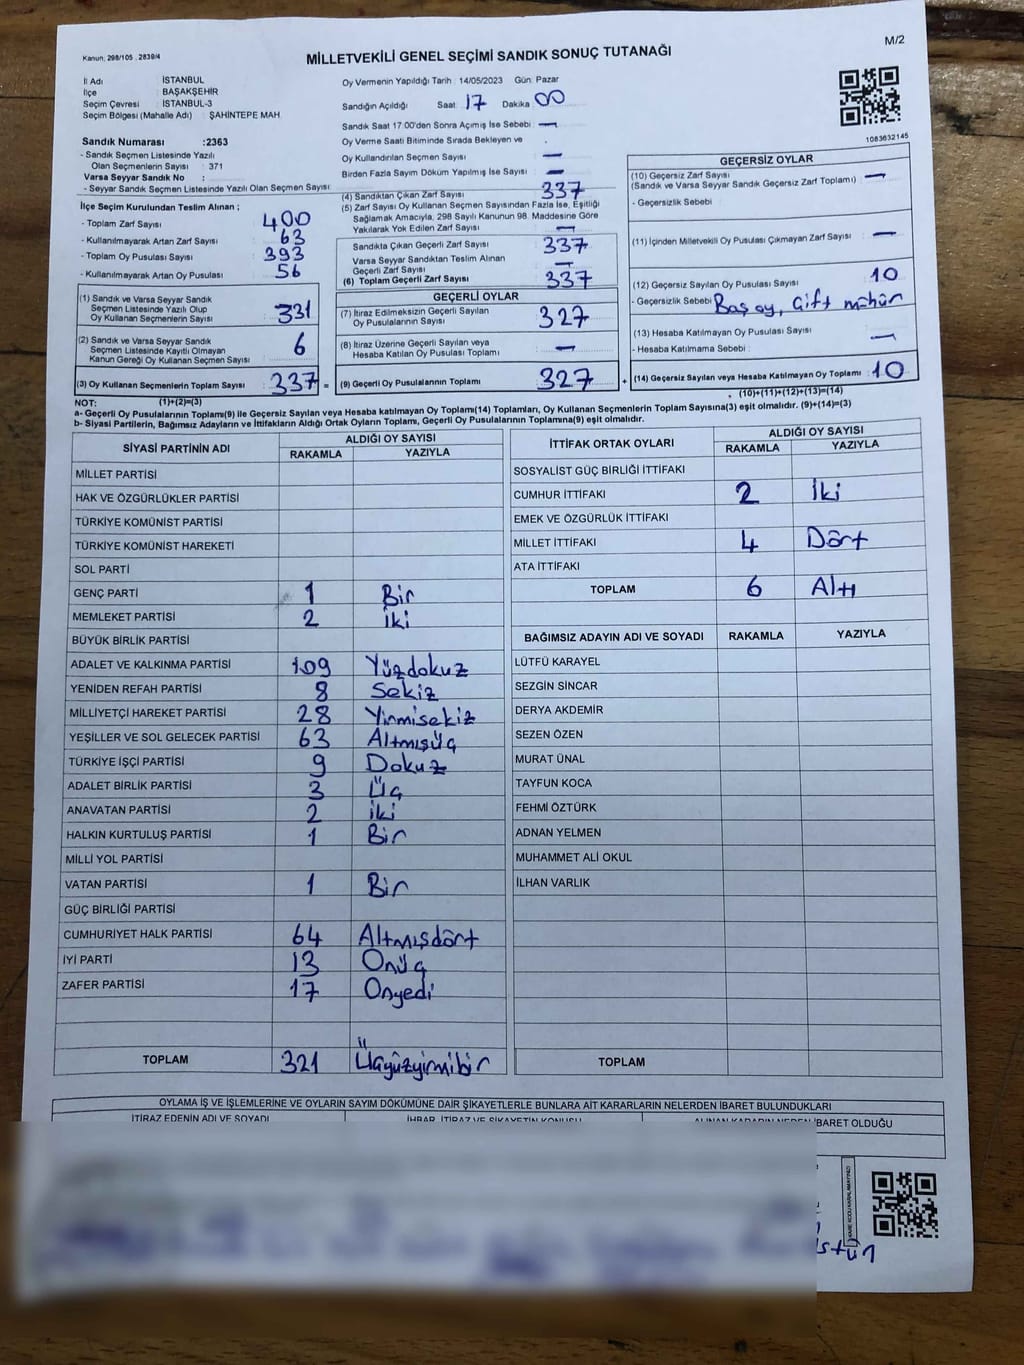 Kanun, 298/105 , 2839/4
MİLLETVEKİLİ GENEL SEÇİMİ SANDIK SONUÇ TUTANAĞI
M/2
İl Adı : İSTANBUL
İlçe : BAŞAKŞEHİR
Seçim Çevresi : İSTANBUL-3
Seçim Bölgesi (Mahalle Adı) : ŞAHİNTEPE MAH
Sandık Numarası :2363
- Sandık Seçmen Listesinde Yazılı
Olan Seçmenlerin Sayısı : 371
Varsa Seyyar Sandık No :
- Seyyar Sandık Seçmen Listesinde Yazılı Olan Seçmen Sayısı:
İlçe Seçim Kurulundan Teslim Alınan ;
- Toplam Zarf Sayısı 400
- Kullanılmayarak Artan Zarf Sayısı 63
- Toplam Oy Pusulası Sayısı 393
- Kullanılmayarak Artan Oy Pusulası 56
(1) Sandık ve Varsa Seyyar Sandık
Seçmen Listesinde Yazılı Olup
Oy Kullanan Seçmenlerin Sayısı 331
(2) Sandık ve Varsa Seyyar Sandık
Seçmen Listesinde Kayıtlı Olmayan
Kanun Gereği Oy Kullanan Seçmen Sayısı 6
(3) Oy Kullanan Seçmenlerin Toplam Sayısı 337 =
Oy Vermenin Yapıldığı Tarih : 14/05/2023 Gün: Pazar
Sandığın Açıldığı Saat: 17 Dakika: 00
Sandık Saat 17:00'den Sonra Açımış İse Sebebi : —
Oy Verme Saati Bitiminde Sırada Bekleyen ve
Oy Kullandırılan Seçmen Sayısı —
Birden Fazla Sayım Döküm Yapılmış İse Sayısı : —
(4) Sandıktan Çıkan Zarf Sayısı 337
(5) Zarf Sayısı Oy Kullanan Seçmen Sayısından Fazla İse, Eşitliği
Sağlamak Amacıyla, 298 Sayılı Kanunun 98. Maddesine Göre
Yakılarak Yok Edilen Zarf Sayısı : —
Sandıkta Çıkan Geçerli Zarf Sayısı 337
Varsa Seyyar Sandıktan Teslim Alınan
Geçerli Zarf Sayısı —
(6) Toplam Geçerli Zarf Sayısı 337
GEÇERLİ OYLAR
(7) İtiraz Edilmeksizin Geçerli Sayılan
Oy Pusulalarının Sayısı 327
(8) İtiraz Üzerine Geçerli Sayılan veya
Hesaba Katılan Oy Pusulası Toplamı —
(9) Geçerli Oy Pusulalarının Toplamı 327 +
1083632145
GEÇERSİZ OYLAR
(10) Geçersiz Zarf Sayısı
(Sandık ve Varsa Seyyar Sandık Geçersiz Zarf Toplamı) —
- Geçersizlik Sebebi :
(11) İçinden Milletvekili Oy Pusulası Çıkmayan Zarf Sayısı —
(12) Geçersiz Sayılan Oy Pusulası Sayısı 10
- Geçersizlik Sebebi : Boş oy, Çift mühür
(13) Hesaba Katılmayan Oy Pusulası Sayısı —
- Hesaba Katılmama Sebebi :
(14) Geçersiz Sayılan veya Hesaba Katılmayan Oy Toplamı : 10
NOT: (1)+(2)=(3)
(10)+(11)+(12)+(13)=(14)
a- Geçerli Oy Pusulalarının Toplamı(9) ile Geçersiz Sayılan veya Hesaba katılmayan Oy Toplamı(14) Toplamları, Oy Kullanan Seçmenlerin Toplam Sayısına(3) eşit olmalıdır. (9)+(14)=(3)
b- Siyasi Partilerin, Bağımsız Adayların ve İttifakların Aldığı Ortak Oyların Toplamı, Geçerli Oy Pusulalarının Toplamına(9) eşit olmalıdır.
SİYASİ PARTİNİN ADI ALDIĞI OY SAYISI
RAKAMLA YAZIYLA
MİLLET PARTİSİ
HAK VE ÖZGÜRLÜKLER PARTİSİ
TÜRKİYE KOMÜNİST PARTİSİ
TÜRKİYE KOMÜNİST HAREKETİ
SOL PARTİ
GENÇ PARTİ 1 Bir
MEMLEKET PARTİSİ 2 İki
BÜYÜK BİRLİK PARTİSİ
ADALET VE KALKINMA PARTİSİ 109 Yüzdokuz
YENİDEN REFAH PARTİSİ 8 Sekiz
MİLLİYETÇİ HAREKET PARTİSİ 28 Yirmisekiz
YEŞİLLER VE SOL GELECEK PARTİSİ 63 Altmışüç
TÜRKİYE İŞÇİ PARTİSİ 9 Dokuz
ADALET BİRLİK PARTİSİ 3 Üç
ANAVATAN PARTİSİ 2 iki
HALKIN KURTULUŞ PARTİSİ 1 Bir
MİLLİ YOL PARTİSİ
VATAN PARTİSİ 1 Bir
GÜÇ BİRLİĞİ PARTİSİ
CUMHURİYET HALK PARTİSİ 64 Altmışdört
İYİ PARTİ 13 Onüç
ZAFER PARTİSİ 17 Onyedi
TOPLAM 321 Üçyüzyirmibir
İTTİFAK ORTAK OYLARI ALDIĞI OY SAYISI
RAKAMLA YAZIYLA
SOSYALİST GÜÇ BİRLİĞİ İTTİFAKI
CUMHUR İTTİFAKI 2 İki
EMEK VE ÖZGÜRLÜK İTTİFAKI
MİLLET İTTİFAKI 4 Dört
ATA İTTİFAKI
TOPLAM 6 Altı
BAĞIMSIZ ADAYIN ADI VE SOYADI RAKAMLA YAZIYLA
LÜTFÜ KARAYEL
SEZGİN SİNCAR
DERYA AKDEMİR
SEZEN ÖZEN
MURAT ÜNAL
TAYFUN KOCA
FEHMİ ÖZTÜRK
ADNAN YELMEN
MUHAMMET ALİ OKUL
İLHAN VARLIK
TOPLAM
OYLAMA İŞ VE İŞLEMLERİNE VE OYLARIN SAYIM DÖKÜMÜNE DAİR ŞİKAYETLERLE BUNLARA AİT KARARLARIN NELERDEN İBARET BULUNDUKLARI
İTİRAZ EDENİN ADI VE SOYADI İHBAR, İTİRAZ VE ŞİKAYETİN KONUSU ALINAN KARARIN NEDEN İBARET OLDUĞU